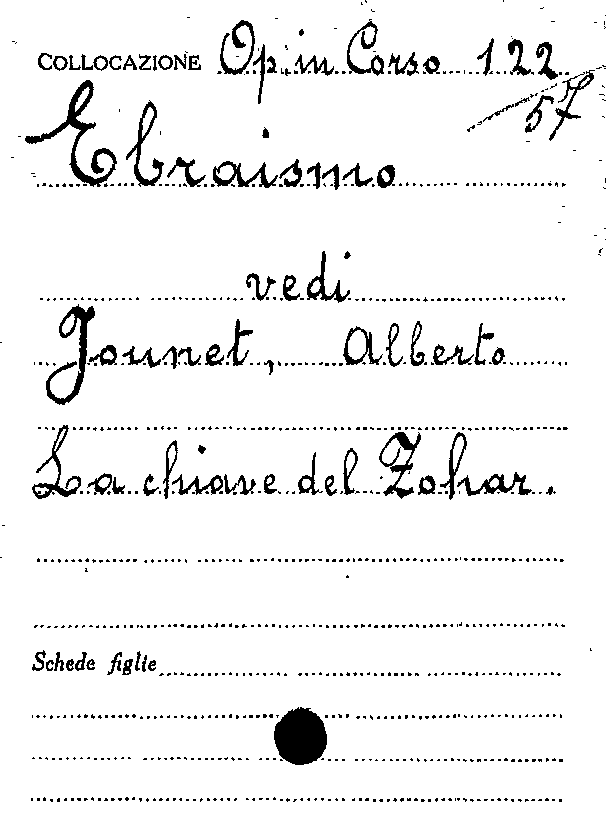 COLLOCAZIONE Op. in Corso 122
57
Ebraismo
vedi
Jounet, Alberto
La chiave del Zohar.
Schede figlie